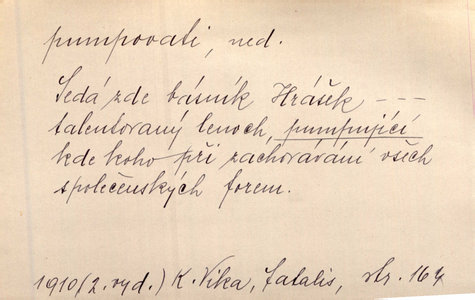 pumpovati, ned.
Sedá zde básník Hrášek ---
talentovaný lenoch, pumpující
kde koho při zachovávání všech
společenských forem.
1910 (2. vyd.) K. Nika, Fatalis, str. 164